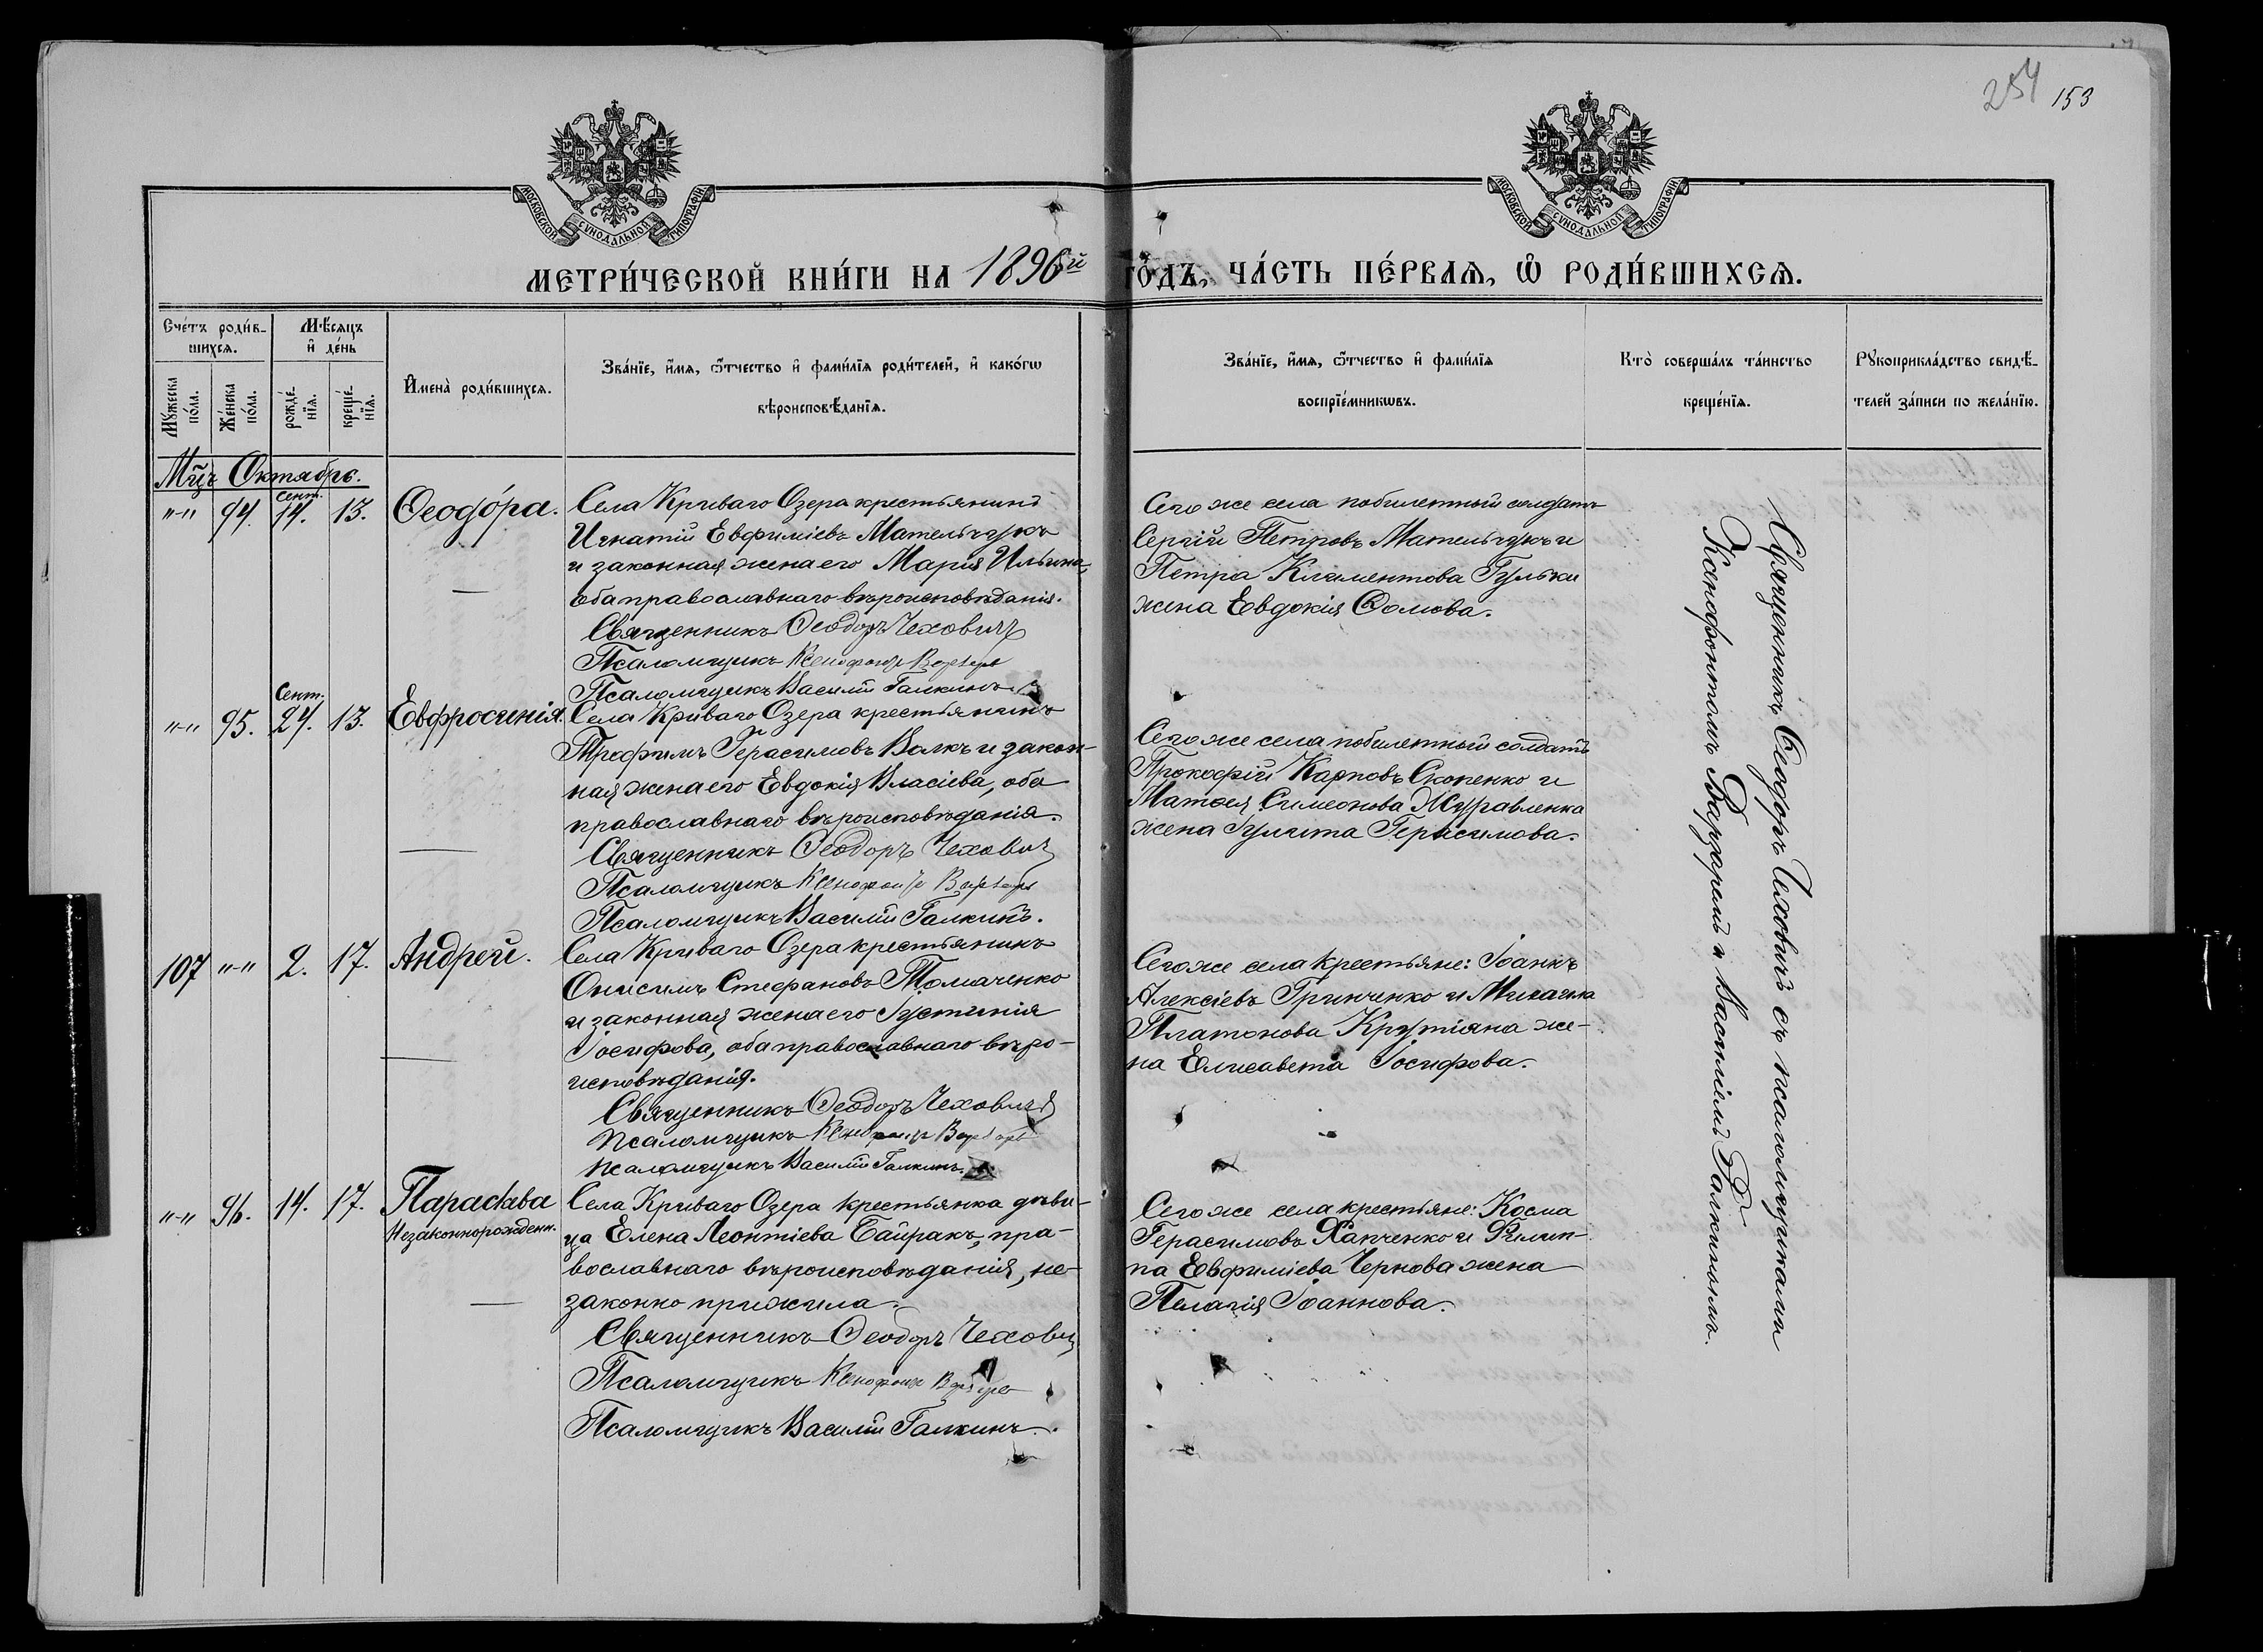 254 153
МОСКОВСКОЙ СѴНОДАЛЬНОЙ ТИПОГРАФІИ
МОСКОВСКОЙ СѴНОДАЛЬНОЙ ТИПОГРАФІИ
МЕТРИ́ЧЕСКОЙ КНИ́ГИ НА 1896й ГО́ДЪ, ЧА́СТЬ ПЕ́РВАѦ, Ѡ҆ РОДИ́ВШИХСѦ.
Счетъ роди́в-
шихсѧ.
Мѣ́сяцъ
и҆ де́нь
Мꙋжеска по́ла.
Же́нска по́ла.
рожде́-
нїѧ.
креще́-
нїѧ.
И҆мена̀ роди́вшихсѧ.
Зва́нїе, и҆́мѧ, ѻ҆́тчество и҆ фами́лїѧ роди́телей, и҆ како́гѡ
вѣроисповѣ́данїѧ.
Зва́нїе, и҆́мѧ, ѻ҆́тчество и҆ фами́лїѧ
воспрїе́мникѡвъ.
Кто̀ соверша́лъ та́инство
креще́нїѧ.
Рꙋкоприкла́дство свидѣ́-
телей за́писи по жела́нїю.
Мцъ Октябрь.
"-" 94. Сент. 14. 13. Ѳеодо́ра.
Села Криваго Озера крестьянинъ
Игнатій Евфиміевъ Мательчукъ
и законная жена его Марія Ильина,
оба православнаго вѣроисповѣданія.
Священникъ Ѳеодоръ Чеховичъ
Псаломщикъ Ксенофонтъ Варзарь
Псаломщикъ Василій Галкинъ.
Сего же села побилетный солдатъ
Сергій Петровъ Мательчукъ и
Петра Климентова Гульки
жена Евдокія Ѳомова.
"-" 95. Сент. 24. 13. Евфросинія.
Села Криваго Озера крестьянинъ
Трофимъ Герасимовъ Валкъ и закон-
ная жена его Евдокія Власіева, оба
православнаго вѣроисповѣданія.
Священникъ Ѳеодоръ Чеховичъ
Псаломщикъ Ксенофонтъ Варзарь
Псаломщикъ Василій Галкинъ.
Сего же села побилетный солдатъ
Прокофій Карповъ Скопенко и
Матѳея Симеонова Журавленка
жена Іулита Герасимова.
107 "-" 2. 17. Андрей.
Села Криваго Озера крестьянинъ
Онисимъ Стефановъ Томаченко
и законная жена его Іустинія
Іосифова, оба православнаго вѣро-
исповѣданія.
Священникъ Ѳеодоръ Чеховичъ
Псаломщикъ Ксенофонтъ Варзарь
Псаломщикъ Василій Галкинъ.
Сего же села крестьяне: Іоаннъ
Алексіевъ Гринченко и Михаила
Платонова Крутіяна же-
на Елисавета Іосифова.
"-" 96. 14. 17. Параскева
Незаконнорожденн.
Села Криваго Озера крестьянка дѣви-
ца Елена Леонтіева Байракъ, пра-
вославнаго вѣроисповѣданія, не-
законно прижила.
Священникъ Ѳеодоръ Чеховичъ
Псаломщикъ Ксенофонтъ Варзарь
Псаломщикъ Василій Галкинъ.
Сего же села крестьяне: Косма
Герасимовъ Хапченко и Филип-
па Евфиміева Чернова жена
Пелагія Іоаннова.
Священникъ Ѳеодоръ Чеховичъ съ псаломщиками
Ксенофонтомъ Варзаремъ и Василіемъ Галкинымъ.